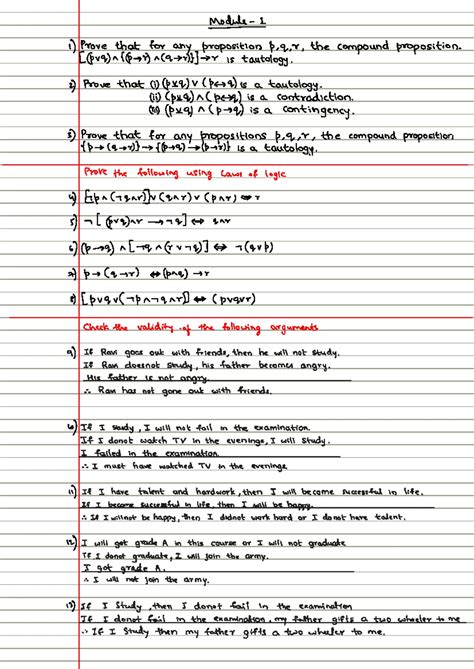 Module - 1
1) Prove that for any proposition p,q,r, the compound proposition.
[(p∨q)∧{(p→r)∧(q→r)}]→r is tautology.
2) Prove that (i) (p⊻q)∨(p↔q) is a tautology.
(ii) (p⊻q)∧(p↔q) is a contradiction.
(iii) (p⊻q)∧(p→q) is a contingency.
3) Prove that for any propositions p,q,r, the compound proposition
{p→(q→r)}→{(p→q)→(p→r)} is a tautology.
Prove the following using Laws of logic
4) [¬p∧(¬q∧r)]∨(q∧r)∨(p∧r)⇔r
5) ¬[(p∨q)∧r→¬q]⇔q∧r
6) (p→q)∧[¬q∧(r∨¬q)]⇔¬(q∨p)
7) p→(q→r)⇔(p∧q)→r
8) [p∨q∨(¬p∧¬q∧r)]⇔(p∨q∨r)
Check the validity of the following arguments
9) If Ravi goes out with friends, then he will not study.
If Ravi doesnot study, his father becomes angry.
His father is not angry.
∴ Ravi has not gone out with friends.
10) If I study, I will not fail in the examination.
If I donot watch TV in the evenings, I will study.
I failed in the examination
∴ I must have watched TV in the evenings
11) If I have talent and hardwork, then I will become successful in life.
If I become successful in life, then I will be happy.
∴ If I will not be happy, then I didnot work hard or I do not have talent.
12) I will get grade A in this course or I will not graduate
If I donot graduate, I will join the army.
I got grade A.
∴ I will not join the army.
13) If I Study, then I donot fail in the examination
If I donot fail in the examination, my father gifts a two wheeler to me.
∴ If I Study then my father gifts a two wheeler to me.